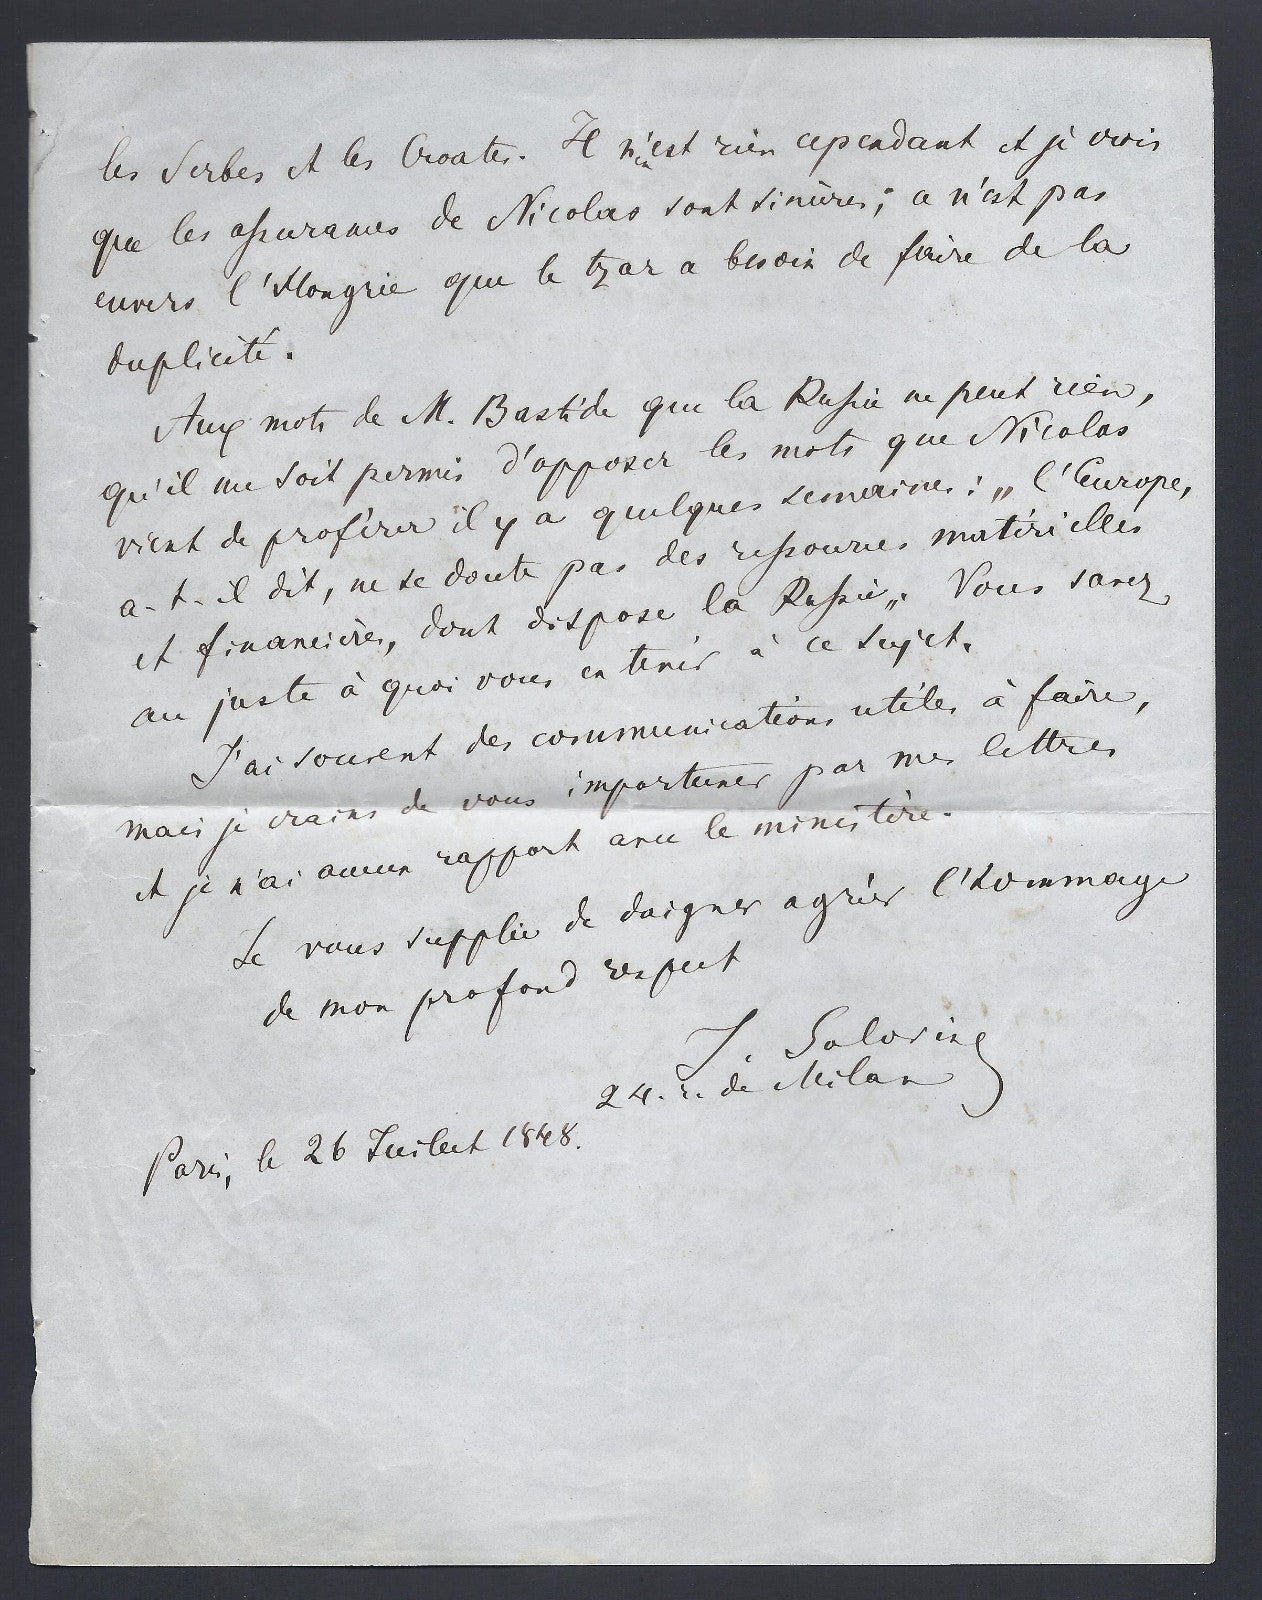 les Serbes et les Croates. Il n'en est rien cependant et je crois
que les assurances de Nicolas sont sincères; ce n'est pas
envers l'Hongrie que le tzar a besoin de faire de la
duplicité.
Aux mots de M. Bastide que la Russie ne peut rien,
qu'il me soit permis d'opposer les mots que Nicolas
vient de proférer il y a quelques semaines: „l'Europe,
a-t-il dit, ne se doute pas des ressources matérielles
et financières, dont dispose la Russie„. Vous savez
au juste à quoi vous en tenir à ce sujet.
J'ai souvent des communications utiles à faire,
mais je crains de vous importuner par mes lettres
et je n'ai aucun rapport avec le ministère.
Je vous supplie de daigner agréer l'hommage
de mon profond respect
24. r. de Milan
Paris, le 26 Juillet 1848.